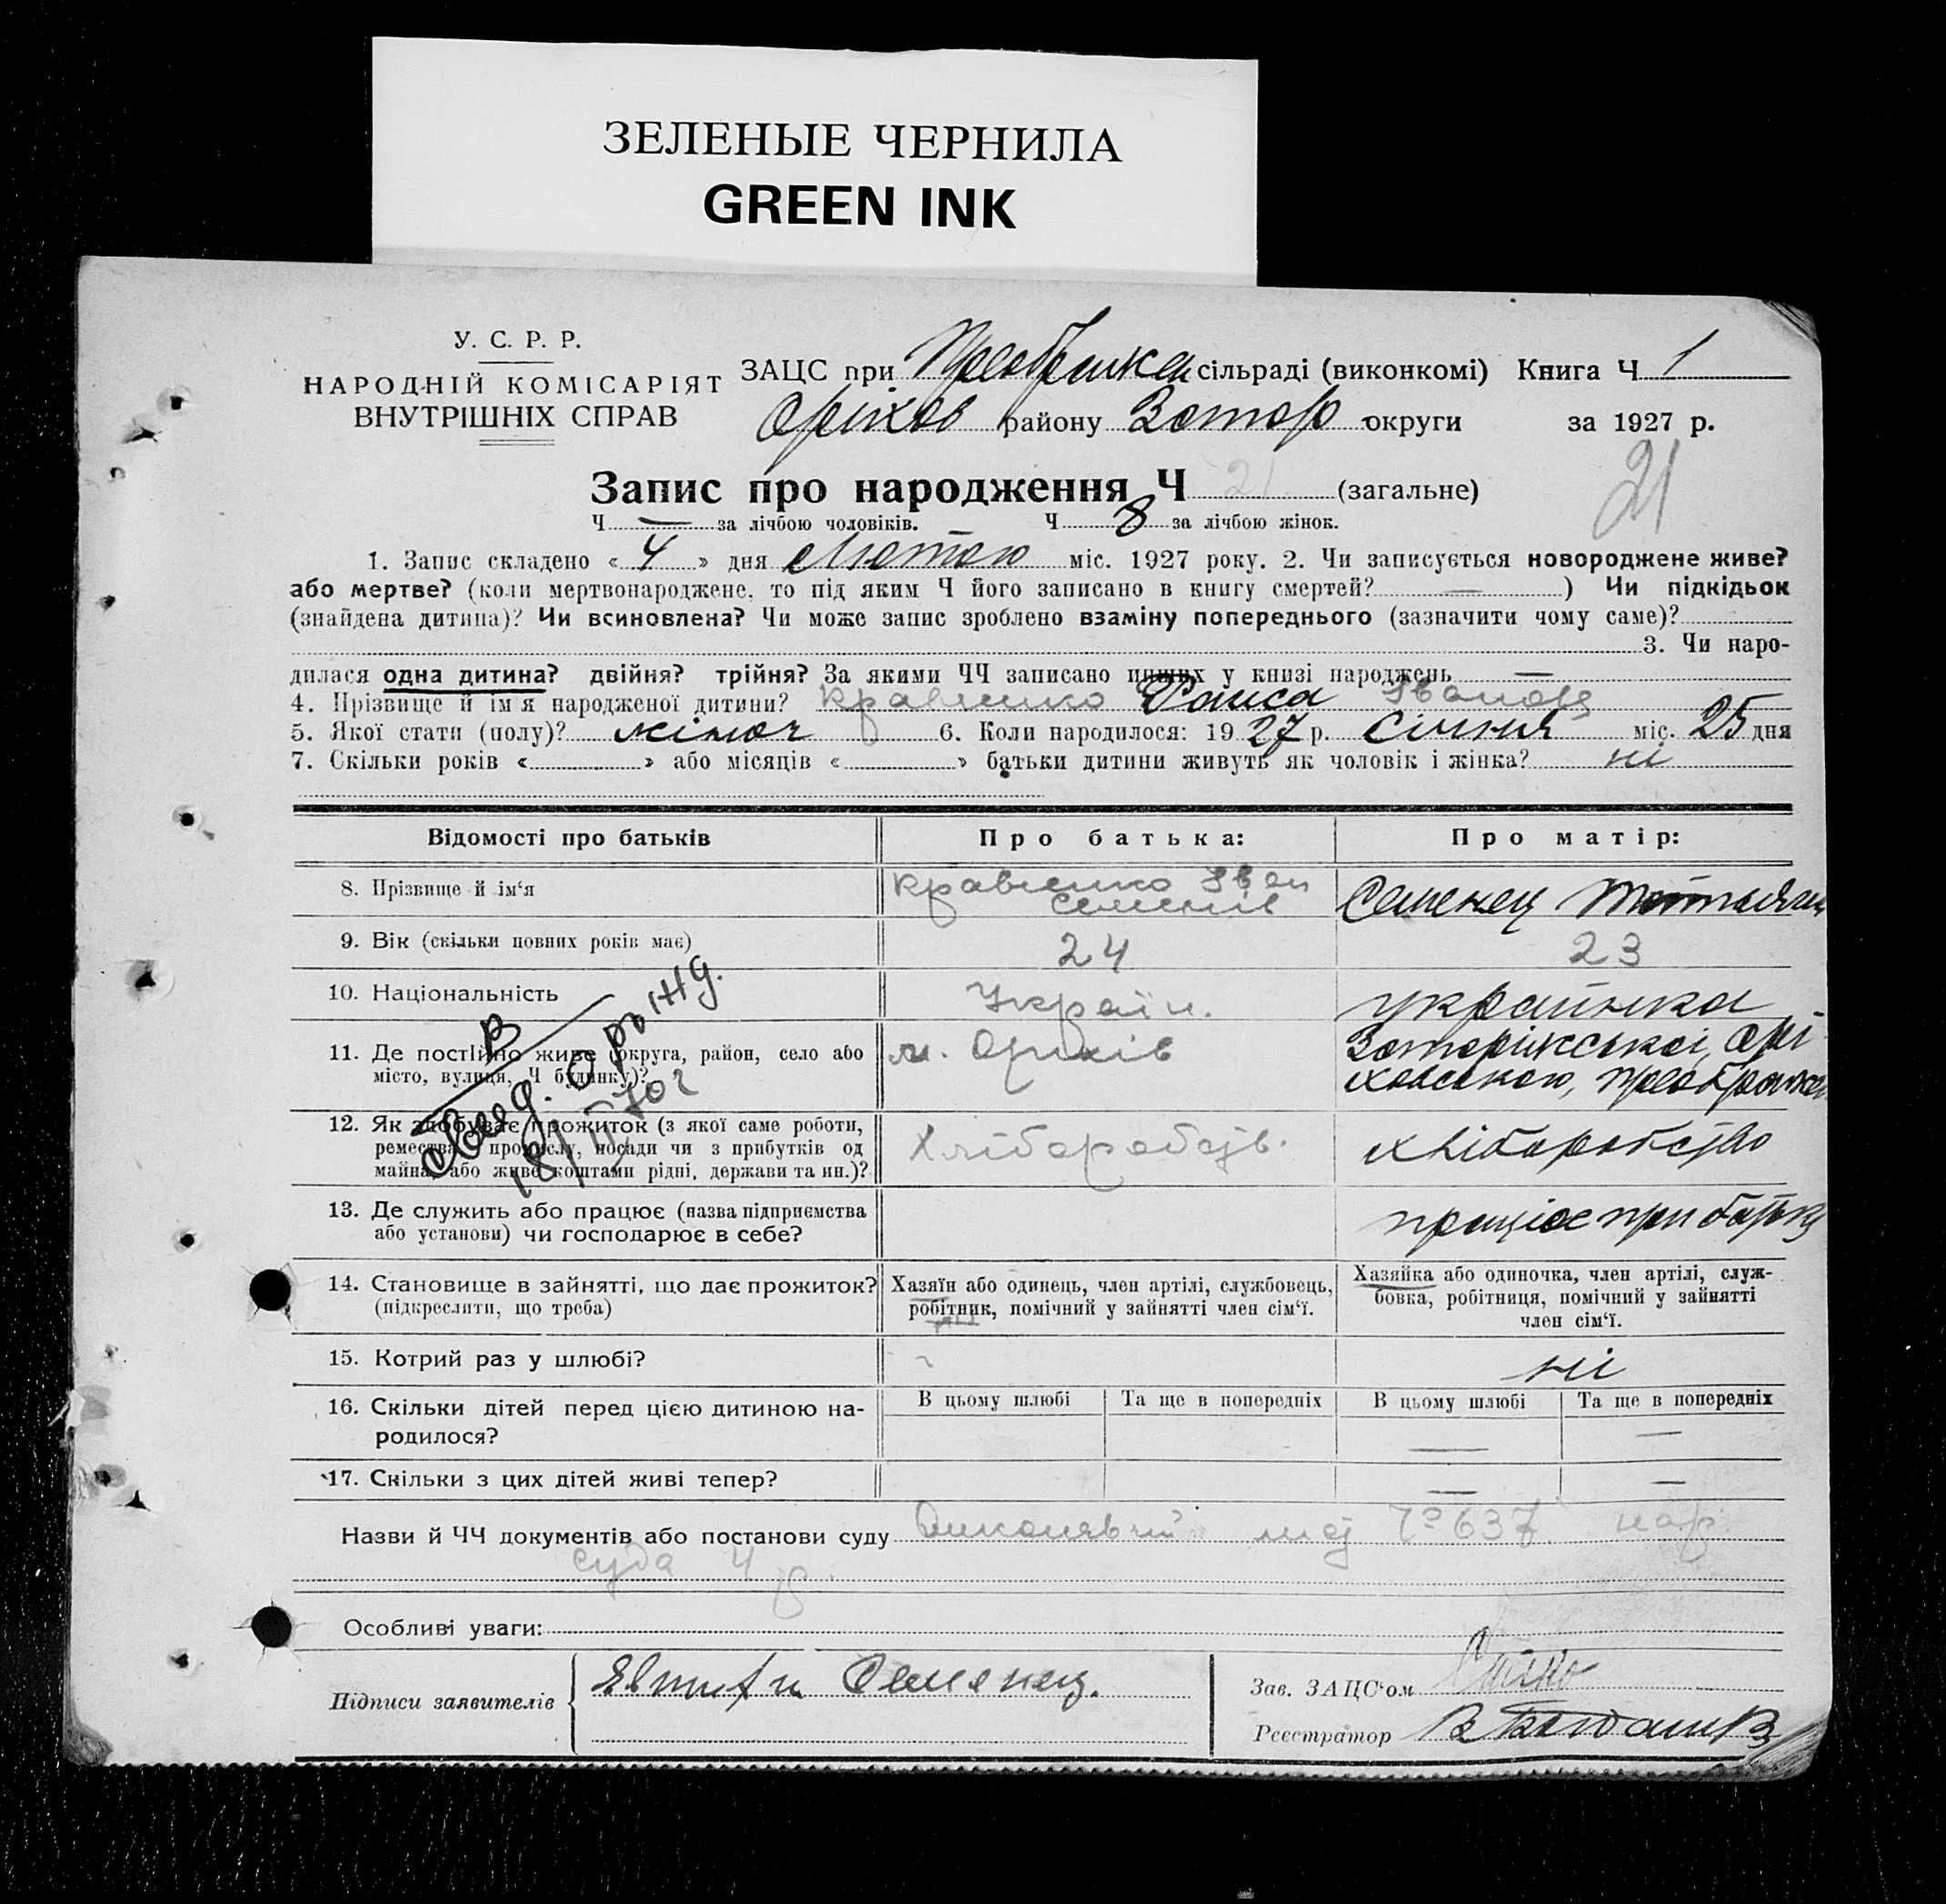 ЗЕЛЕНЫЕ ЧЕРНИЛА
GREEN INK
У. С. Р. Р.
НАРОДНІЙ КОМІСАРІЯТ
ВНУТРІШНІХ СПРАВ
ЗАЦС при Преображен сільраді (виконкомі) Книга Ч 1
Оріхов району Запор округи за 1927 р.
21
Запис про народження Ч 21 (загальне)
Ч — за лічбою чоловіків. Ч 8 за лічбою жінок.
1. Запис складено « 4 » дня Лютого міс. 1927 року. 2. Чи записується новороджене живе?
або мертве? (коли мертвонароджене, то під яким Ч його записано в книгу смертей? — ) Чи підкідьок
(знайдена дитина)? Чи всиновлена? Чи може запис зроблено взаміну попереднього (зазначити чому саме)?
3. Чи наро-
дилася одна дитина? двійня? трійня? За якими ЧЧ записано инших у книзі народжень —
4. Прізвище й ім'я народженої дитини? Кравченко Раиса Іванов
5. Якої стати (полу)? жіноч 6. Коли народилося: 1927 р. Січня міс. 25 дня
7. Скільки років « » або місяців « » батьки дитини живуть як чоловік і жінка? ні
Відомості про батьків Про батька: Про матір:
8. Прізвище й ім'я Кравченко Іван Семенів Семенец
9. Вік (скільки повних років має) 24 23
10. Національність Україн. українка
11. Де постійно живе (округа, район, село або місто, вулиця, Ч будинку)? м. Оріхів
12. Як здобуває прожиток (з якої саме роботи, ремества, промислу, посади чи з прибутків од майна, або живе коштами рідні, держави та ин.)? Хліборобств. хліборобство
13. Де служить або працює (назва підприємства або установи) чи господарює в себе? працює при батьку
14. Становище в зайнятті, що дає прожиток? (підкреслити, що треба) Хазяїн або одинець, член артілі, службовець, робітник, помічний у зайнятті член сім'ї. Хазяйка або одиночка, член артілі, служ-бовка, робітниця, помічний у зайнятті член сім'ї.
15. Котрий раз у шлюбі? ні
16. Скільки дітей перед цією дитиною на-родилося? В цьому шлюбі Та ще в попередніх В цьому шлюбі — Та ще в попередніх —
17. Скільки з цих дітей живі тепер? — —
Назви й ЧЧ документів або постанови суду лист 637 нар
суда 4
Особливі уваги:
Підписи заявителів Семенец.
Зав. ЗАЦС'ом
Реєстратор